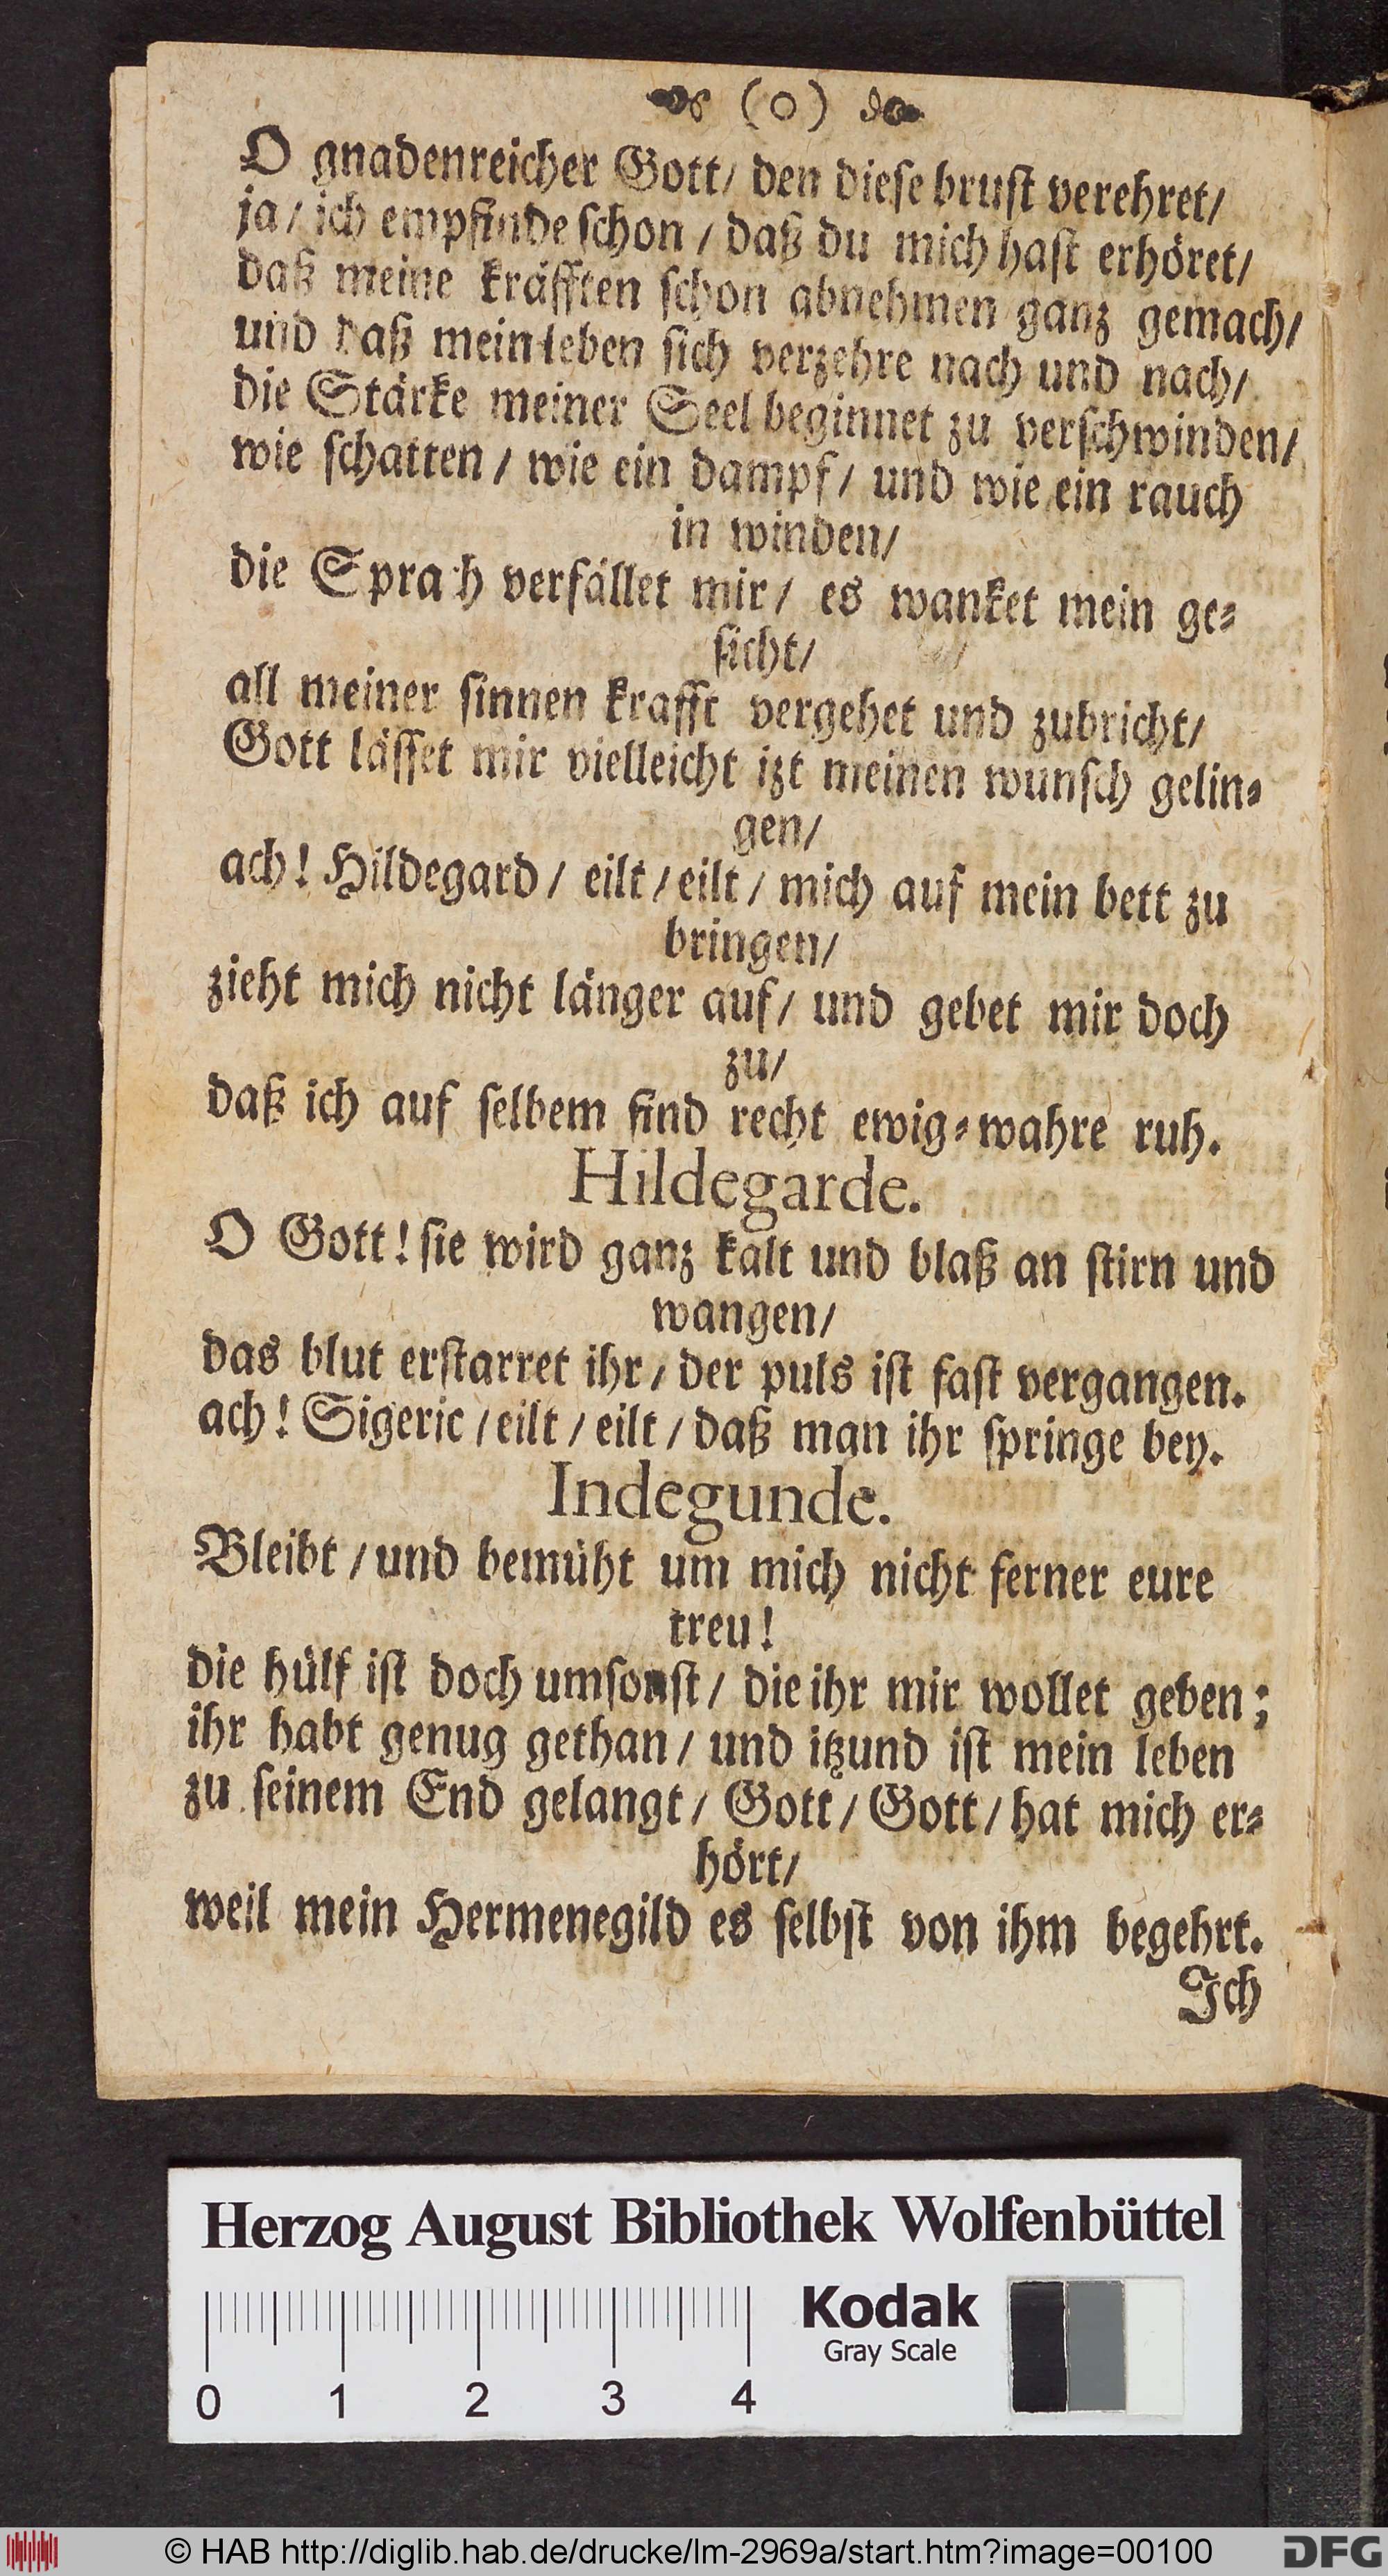 (o)
O gnadenreicher Gott/ den diese brust verehret/
ja/ ich empfinde schon/ daß du mich hast erhöret/
daß meine kräfften schon abnehmen ganz gemach/
und daß mein leben sich verzehre nach und nach/
die Stärke meiner Seel beginnet zu verschwinden/
wie schatten/ wie ein dampf/ und wie ein rauch
in winden/
die Sprach verfället mir/ es wanket mein ge-
sicht/
all meiner sinnen krafft vergehet und zubricht/
Gott lässet mir vielleicht izt meinen wunsch gelin-
gen/
ach! Hildegard/ eilt/ eilt/ mich auf mein bett zu
bringen/
zieht mich nicht länger auf/ und gebet mir doch
zu/
daß ich auf selbem find recht ewig-wahre ruh.
Hildegarde.
O Gott! sie wird ganz kalt und blaß an stirn und
wangen/
das blut erstarret ihr/ der puls ist fast vergangen.
ach! Sigeric/ eilt/ eilt/ daß man ihr springe bey.
Indegunde.
Bleibt/ und bemüht um mich nicht ferner eure
treu!
die hülf ist doch umsonst/ die ihr mir wollet geben;
ihr habt genug gethan/ und itzund ist mein leben
zu seinem End gelangt/ Gott/ Gott/ hat mich er-
hört/
weil mein Hermenegild es selbst von ihm begehrt.
Ich
Herzog August Bibliothek Wolfenbüttel
Kodak
Gray Scale
0 1 2 3 4
© HAB http://diglib.hab.de/drucke/lm-2969a/start.htm?image=00100
DFG